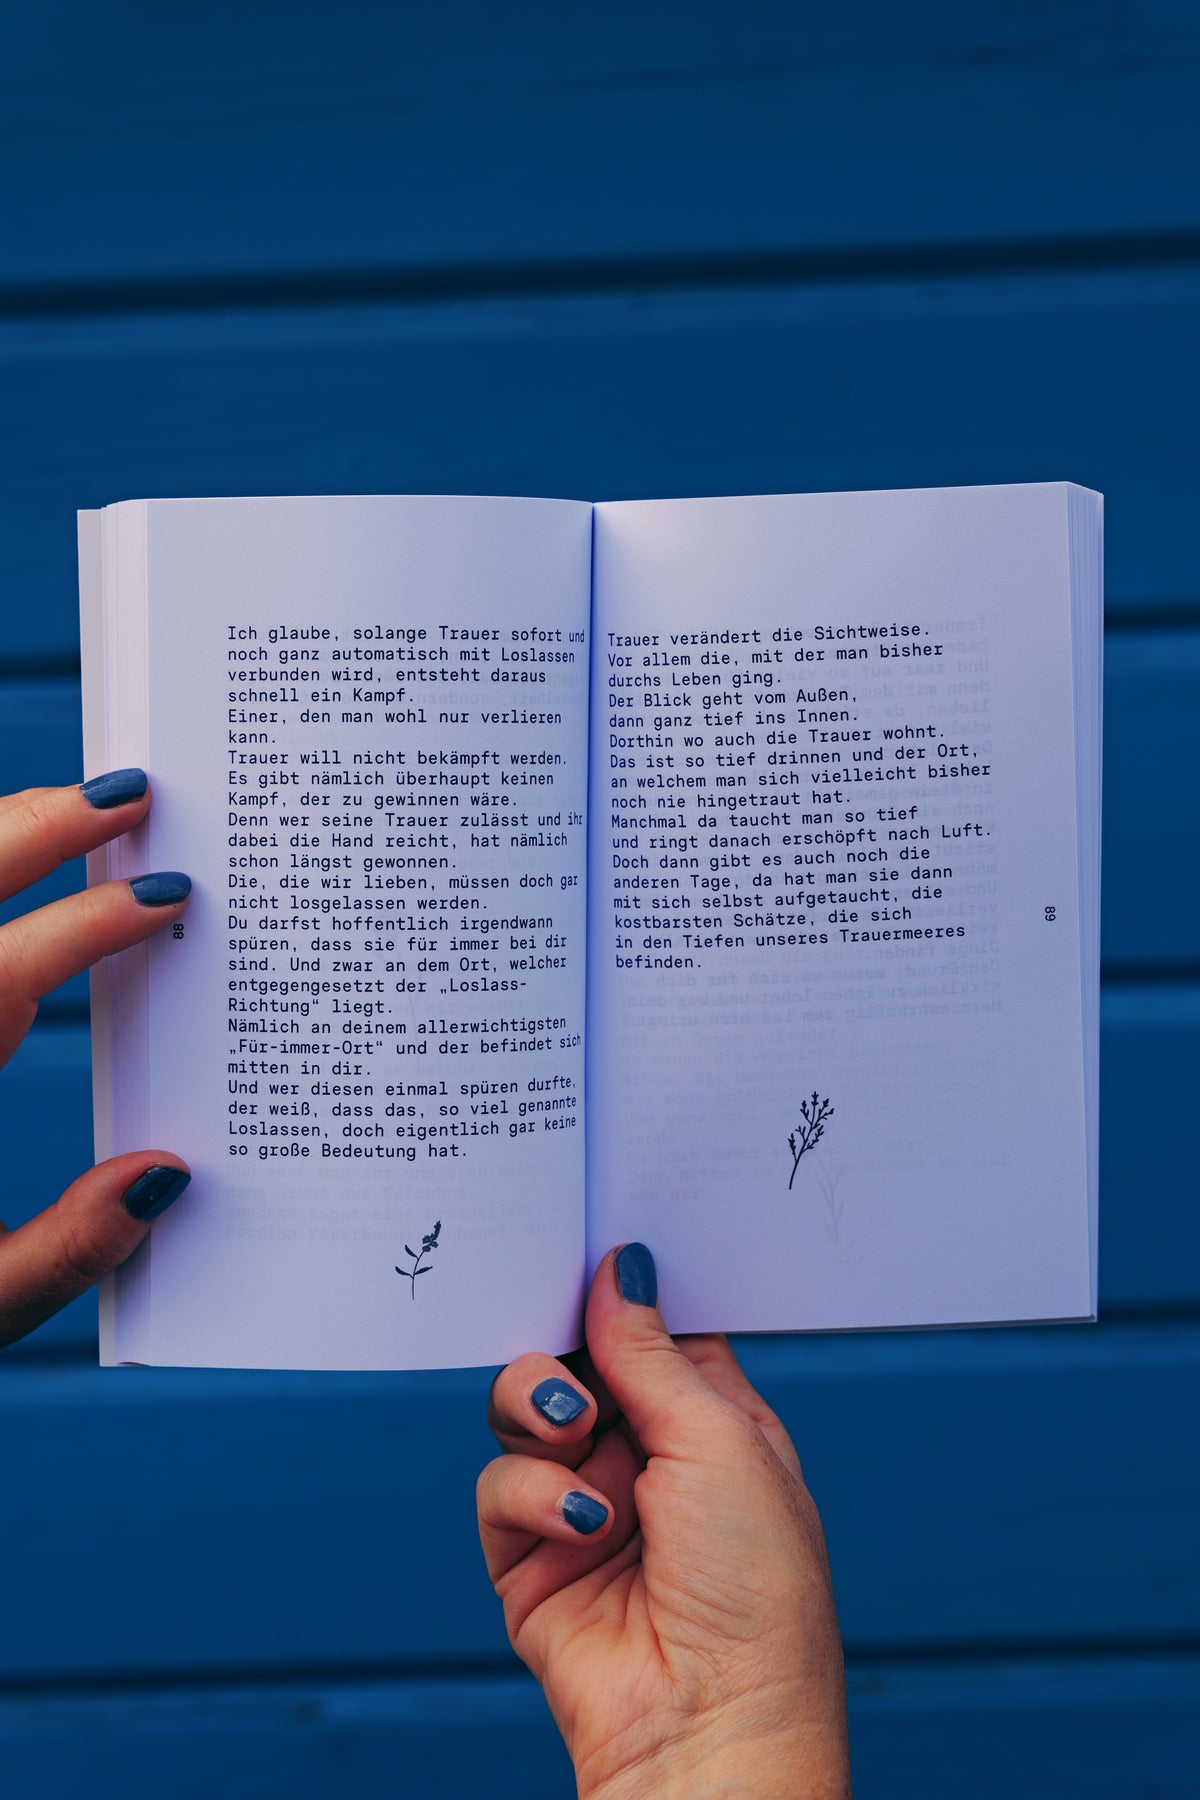 Ich glaube, solange Trauer sofort und
noch ganz automatisch mit Loslassen
verbunden wird, entsteht daraus
schnell ein Kampf.
Einer, den man wohl nur verlieren
kann.
Trauer will nicht bekämpft werden.
Es gibt nämlich überhaupt keinen
Kampf, der zu gewinnen wäre.
Denn wer seine Trauer zulässt und ihr
dabei die Hand reicht, hat nämlich
schon längst gewonnen.
Die, die wir lieben, müssen doch gar
nicht losgelassen werden.
Du darfst hoffentlich irgendwann
spüren, dass sie für immer bei dir
sind. Und zwar an dem Ort, welcher
entgegengesetzt der „Loslass-
Richtung“ liegt.
Nämlich an deinem allerwichtigsten
„Für-immer-Ort“ und der befindet sich
mitten in dir.
Und wer diesen einmal spüren durfte,
der weiß, dass das, so viel genannte
Loslassen, doch eigentlich gar keine
so große Bedeutung hat.
88
Trauer verändert die Sichtweise.
Vor allem die, mit der man bisher
durchs Leben ging.
Der Blick geht vom Außen,
dann ganz tief ins Innen.
Dorthin wo auch die Trauer wohnt.
Das ist so tief drinnen und der Ort,
an welchem man sich vielleicht bisher
noch nie hingetraut hat.
Manchmal da taucht man so tief
und ringt danach erschöpft nach Luft.
Doch dann gibt es auch noch die
anderen Tage, da hat man sie dann
mit sich selbst aufgetaucht, die
kostbarsten Schätze, die sich
in den Tiefen unseres Trauermeeres
befinden.
89